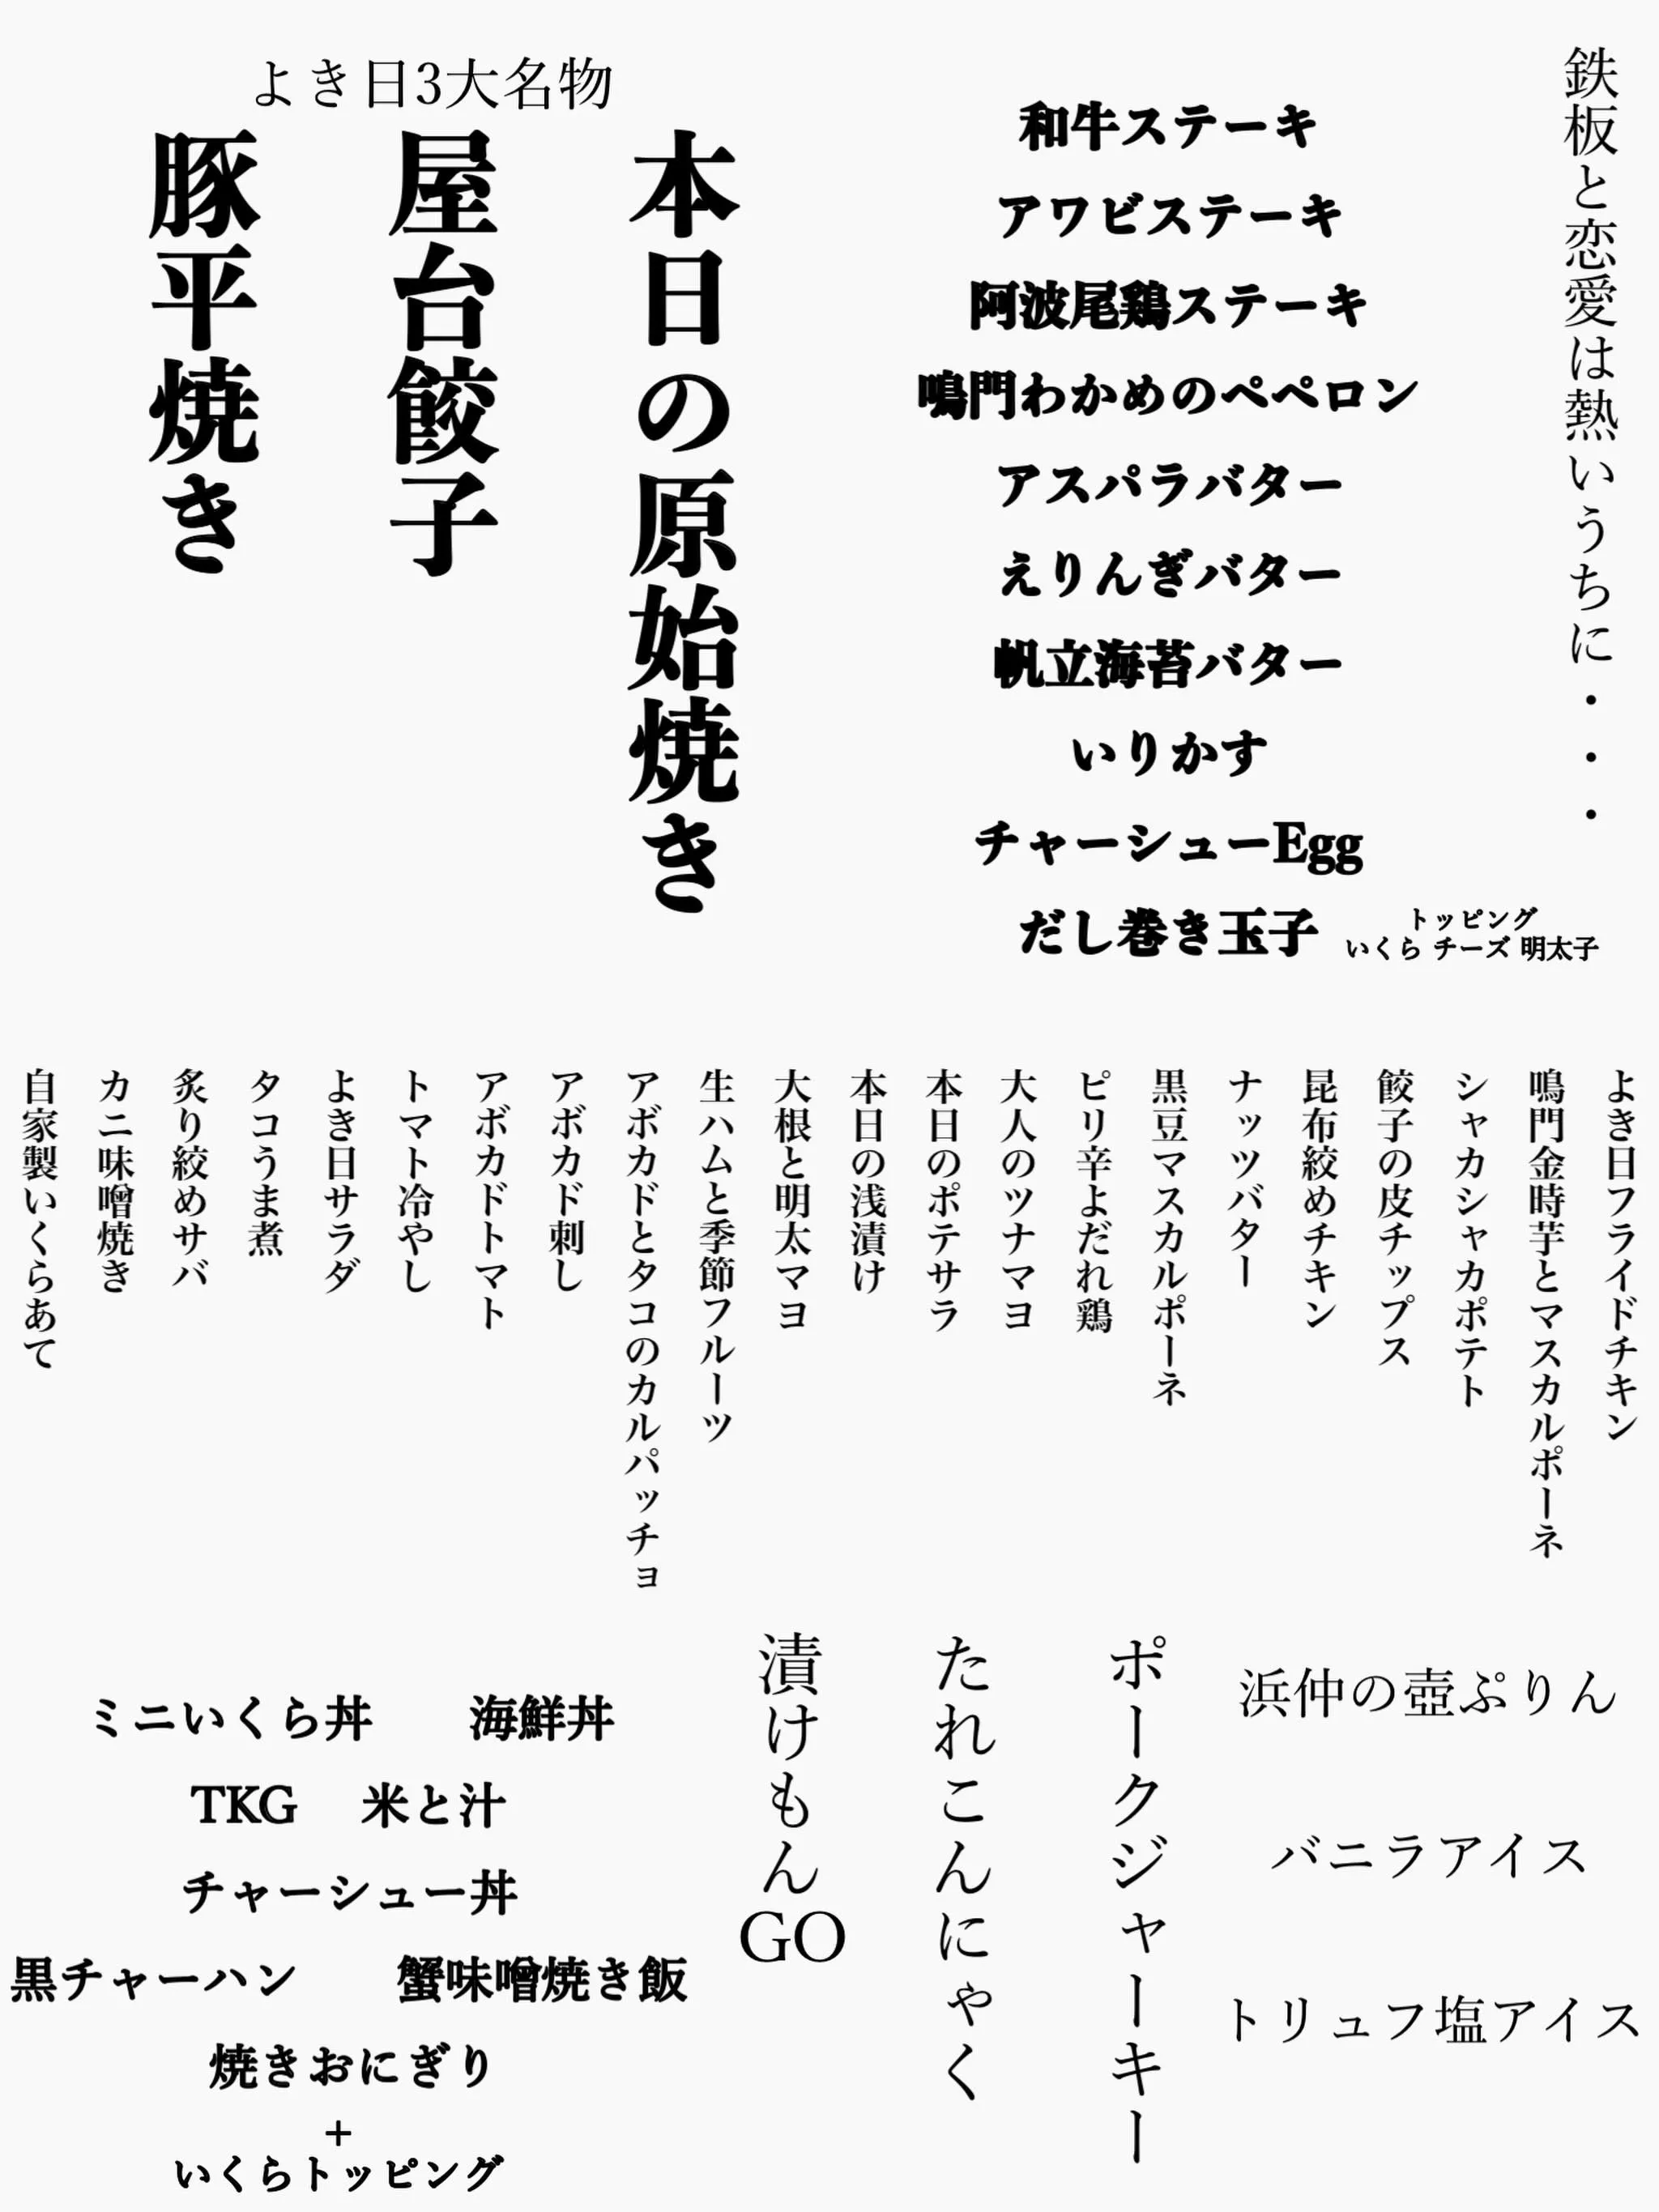 鉄板と恋愛は熱いうちに・・・
和牛ステーキ
アワビステーキ
阿波尾鶏ステーキ
鳴門わかめのペペロン
アスパラバター
えりんぎバター
帆立海苔バター
いりかす
チャーシューEgg
だし巻き玉子
トッピング
いくら チーズ 明太子
よき日3大名物
本日の原始焼き
屋台餃子
豚平焼き
よき日フライドチキン
鳴門金時芋とマスカルポーネ
シャカシャカポテト
餃子の皮チップス
昆布絞めチキン
ナッツバター
黒豆マスカルポーネ
ピリ辛よだれ鶏
大人のツナマヨ
本日のポテサラ
本日の浅漬け
大根と明太マヨ
生ハムと季節フルーツ
アボカドとタコのカルパッチョ
アボカド刺し
アボカドトマト
トマト冷やし
よき日サラダ
タコうま煮
炙り絞めサバ
カニ味噌焼き
自家製いくらあて
浜仲の壺ぷりん
バニラアイス
トリュフ塩アイス
ポークジャーキー
たれこんにゃく
漬けもんGO
ミニいくら丼 海鮮丼
TKG 米と汁
チャーシュー丼
黒チャーハン 蟹味噌焼き飯
焼きおにぎり
+
いくらトッピング